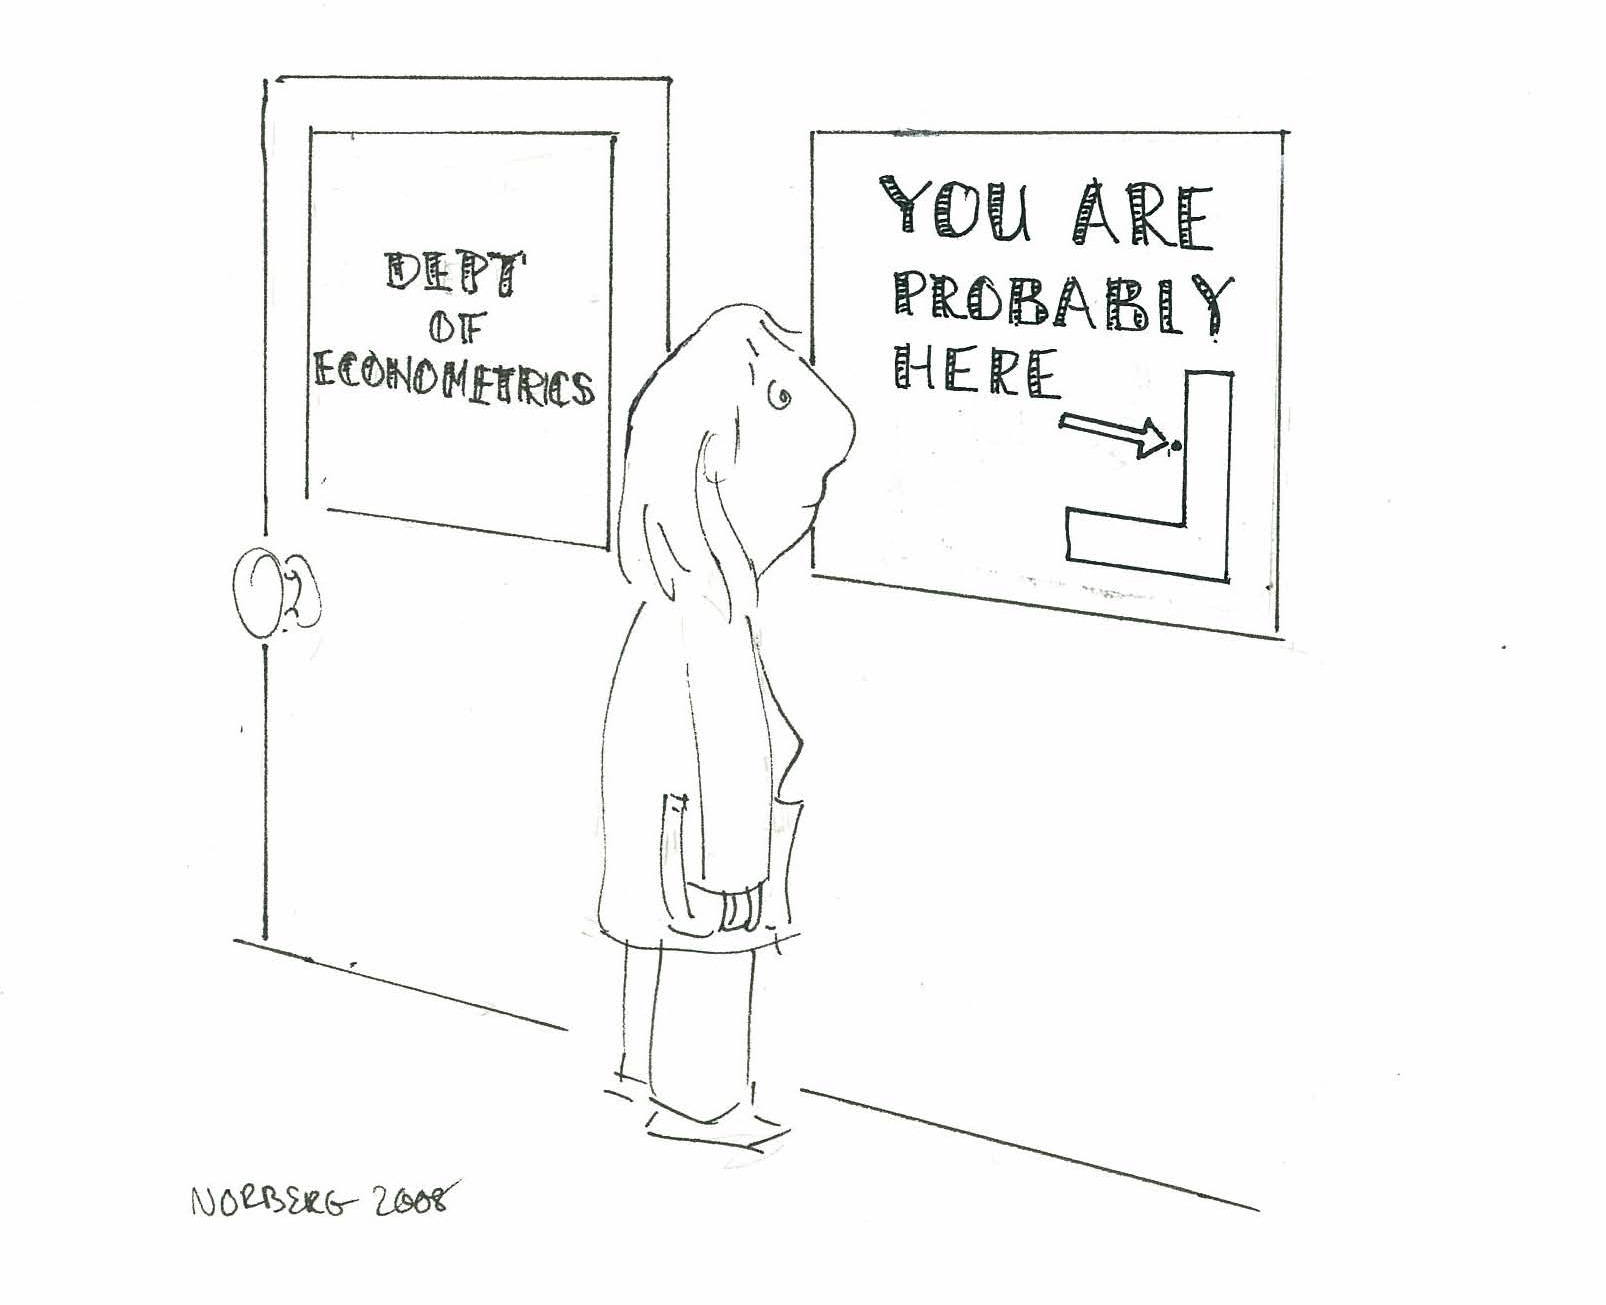 DEPT
OF
ECONOMETRICS
YOU ARE
PROBABLY
HERE
NORBERG 2008